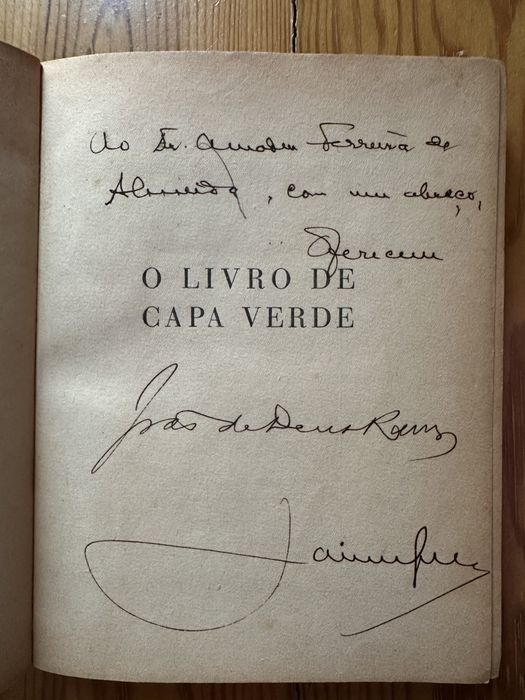 Ao Dr. Amadeu Ferreira de
Almeida, com um abraço,
Oferecem
O LIVRO DE
CAPA VERDE
João de Deus Ramos
Jaime